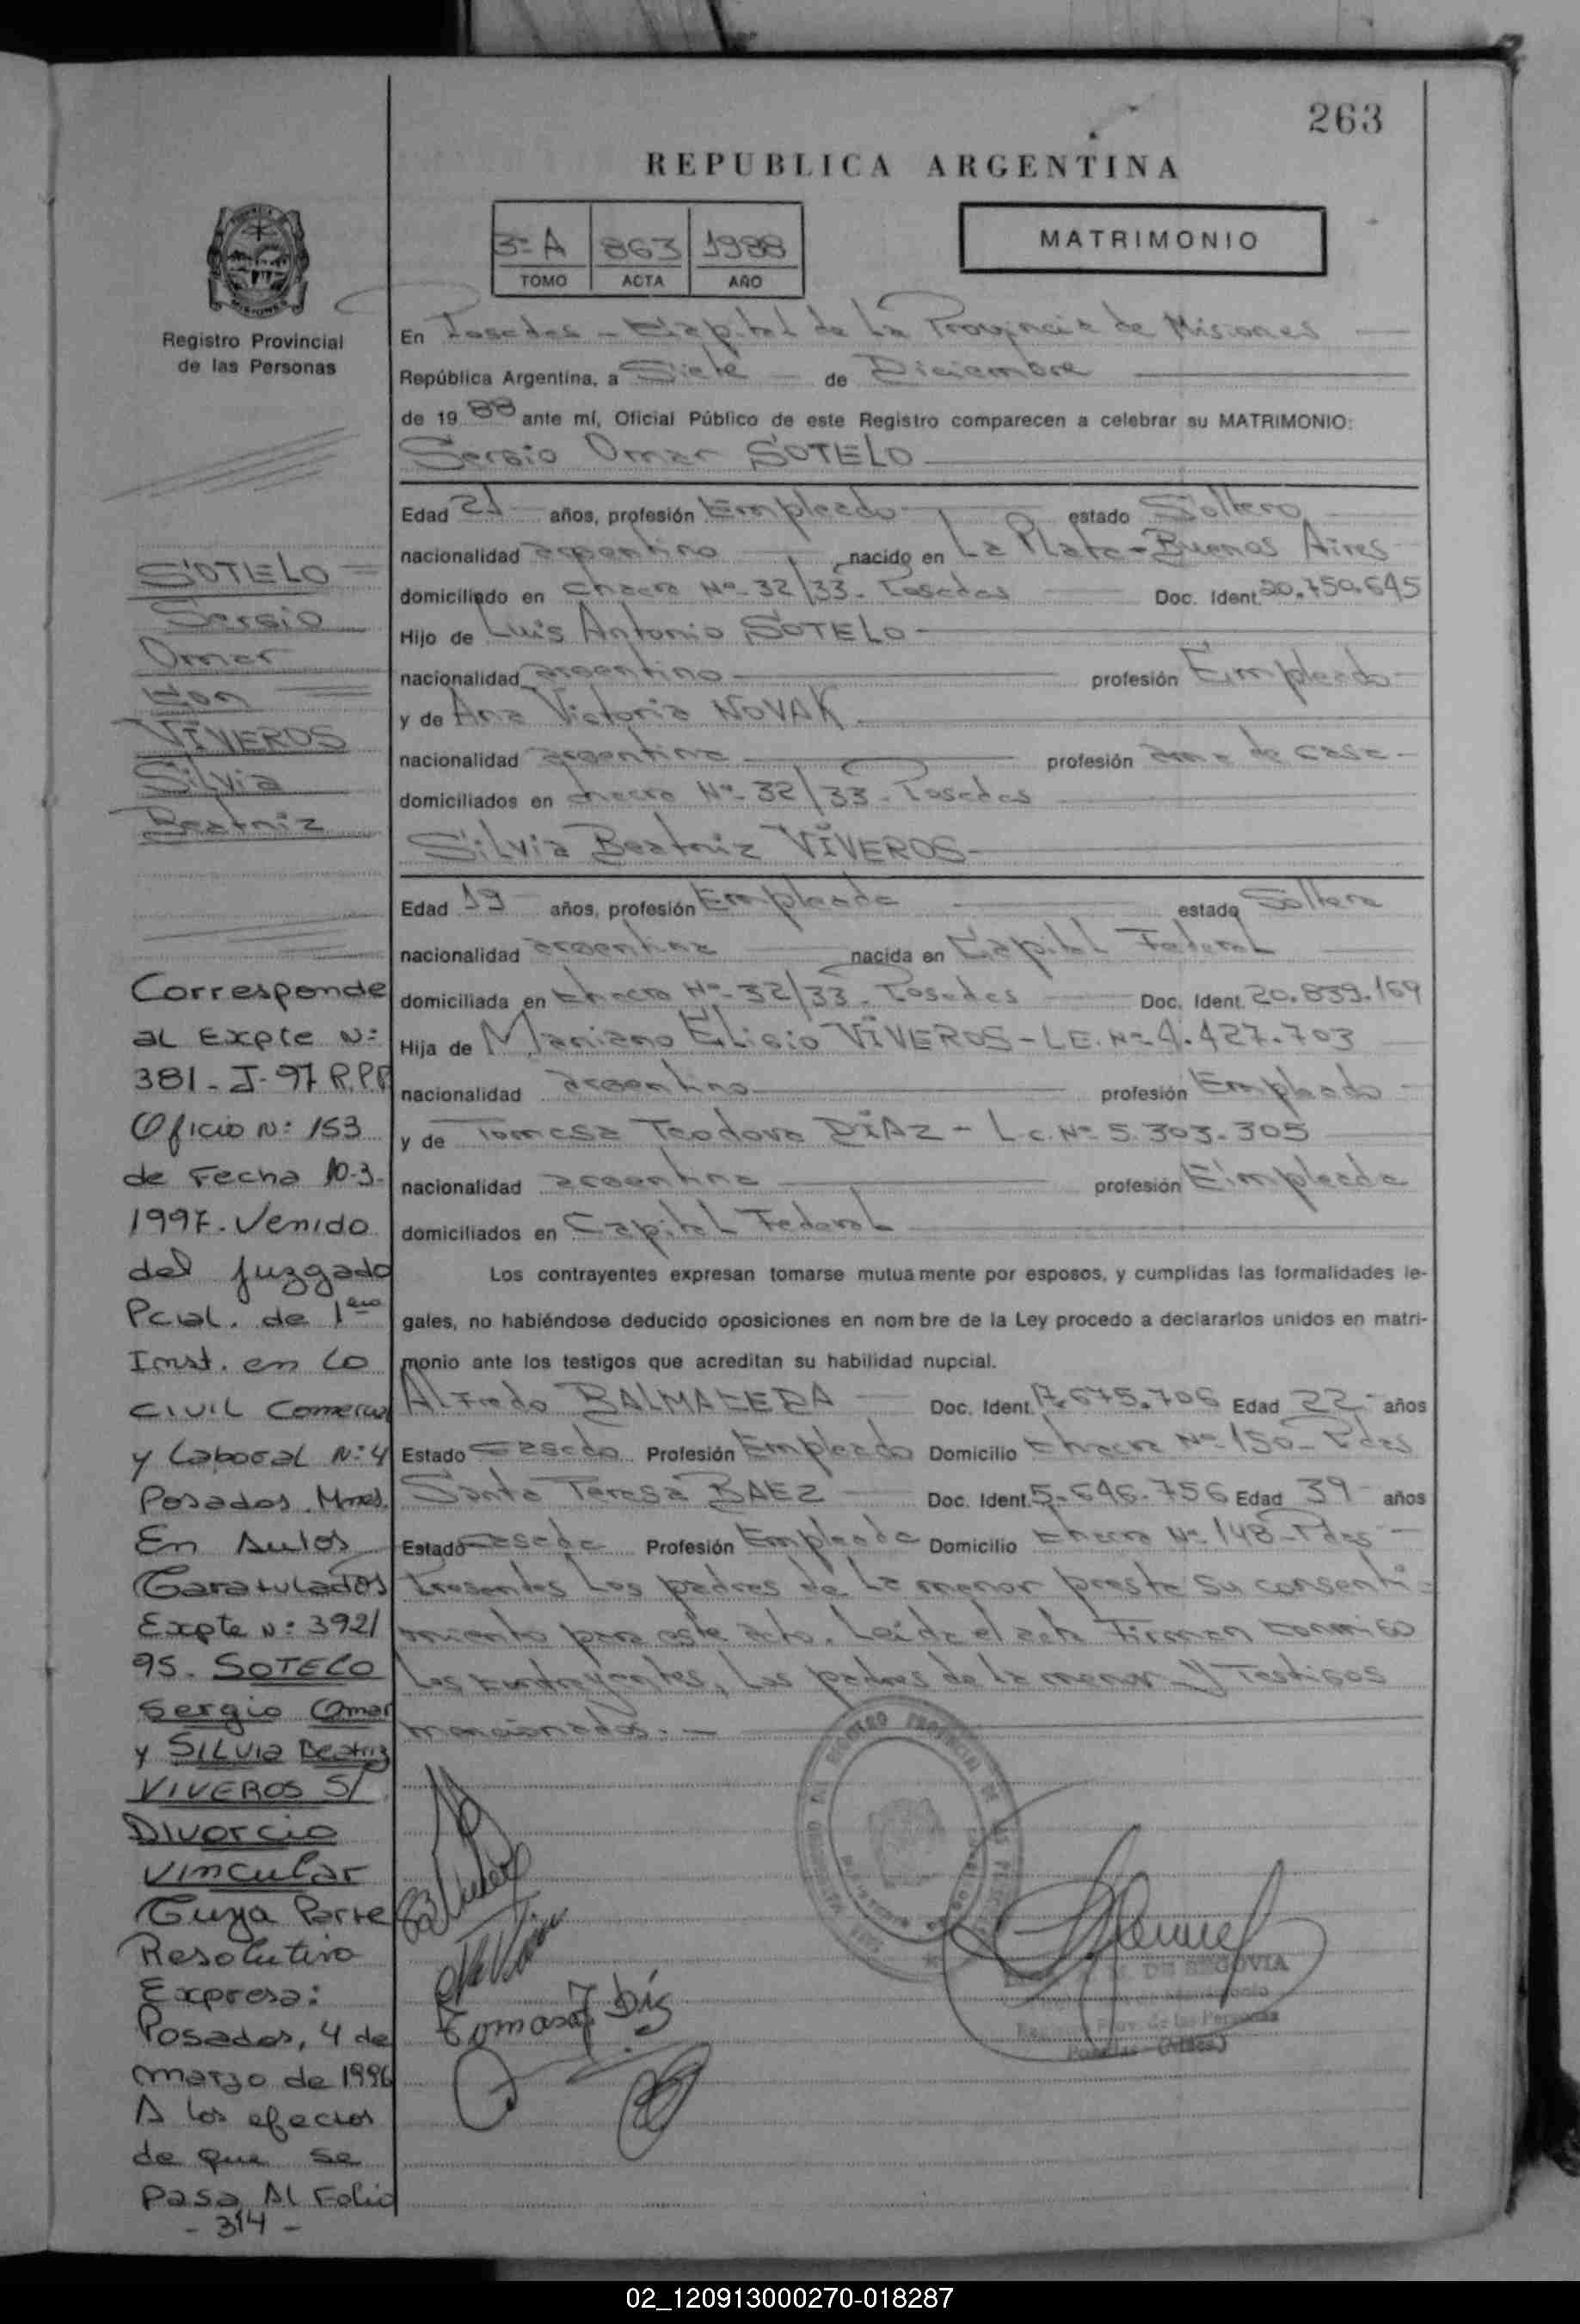 263
REPUBLICA ARGENTINA
3=A 863 1988
TOMO ACTA AÑO
MATRIMONIO
Registro Provincial
de las Personas
En Posadas - Capital de La Provincia de Misiones
República Argentina, a Siete de Diciembre
de 19 88 ante mí, Oficial Público de este Registro comparecen a celebrar su MATRIMONIO:
Sergio Omar SOTELO
Edad 21 años, profesión Empleado estado Soltero
nacionalidad argentino nacido en La Plata - Buenos Aires
domiciliado en Chacra Nº 32/33 - Posadas Doc. Ident. 20.750.645
Hijo de Luis Antonio SOTELO
nacionalidad argentino profesión Empleado
y de Ana Victoria NOVAK
nacionalidad argentina profesión ama de casa
domiciliados en chacra Nº 32/33 - Posadas
Silvia Beatriz VIVEROS
Edad 19 años, profesión Empleada estado Soltera
nacionalidad argentina nacida en Capital Federal
domiciliada en Chacra Nº 32/33 - Posadas Doc. Ident. 20.839.169
Hija de Mariano Eligio VIVEROS - L.E. Nº 4.427.703
nacionalidad argentino profesión Empleado
y de Tomasa Teodora DIAZ - L.C. Nº 5.303.305
nacionalidad argentina profesión Empleada
domiciliados en Capital Federal
Los contrayentes expresan tomarse mutuamente por esposos, y cumplidas las formalidades le-
gales, no habiéndose deducido oposiciones en nombre de la Ley procedo a declararlos unidos en matri-
monio ante los testigos que acreditan su habilidad nupcial.
Alfredo BALMACEDA Doc. Ident. 17.675.706 Edad 22 años
Estado Casado Profesión Empleado Domicilio Chacra Nº 150 - Pdas
Santa Teresa BAEZ Doc. Ident. 5.646.756 Edad 39 años
Estado Casada Profesión Empleada Domicilio Chacra Nº 148 - Pdas
Presentes Los padres de La menor presta su consenti-
miento para este acto. Leida el acta Firman conmigo
Los contrayentes, Los padres de la menor y Testigos
mencionados. -
SOTELO
Sergio
Omar
con
VIVEROS
Silvia
Beatriz
Corresponde
al Expte N:
381-J-97 R.P.P
Oficio N: 153
de Fecha 10-3-
1997. Venido
del Juzgado
Pcial. de 1era
Inst. en lo
CIVIL Comercial
y Laboral N: 4
Posadas. Mnes.
En Autos
Caratulados
Expte N: 392/
95. SOTELO
Sergio Omar
y SILVIA Beatriz
VIVEROS S/
Divorcio
Vincular
Cuya Parte
Resolutiva
Expresa:
Posadas, 4 de
marzo de 1996
A los efectos
de que se
pasa Al Folio
- 314 -
Tomasa T Diaz
DE SEGOVIA
Posadas - (Mnes.)
02_120913000270-018287